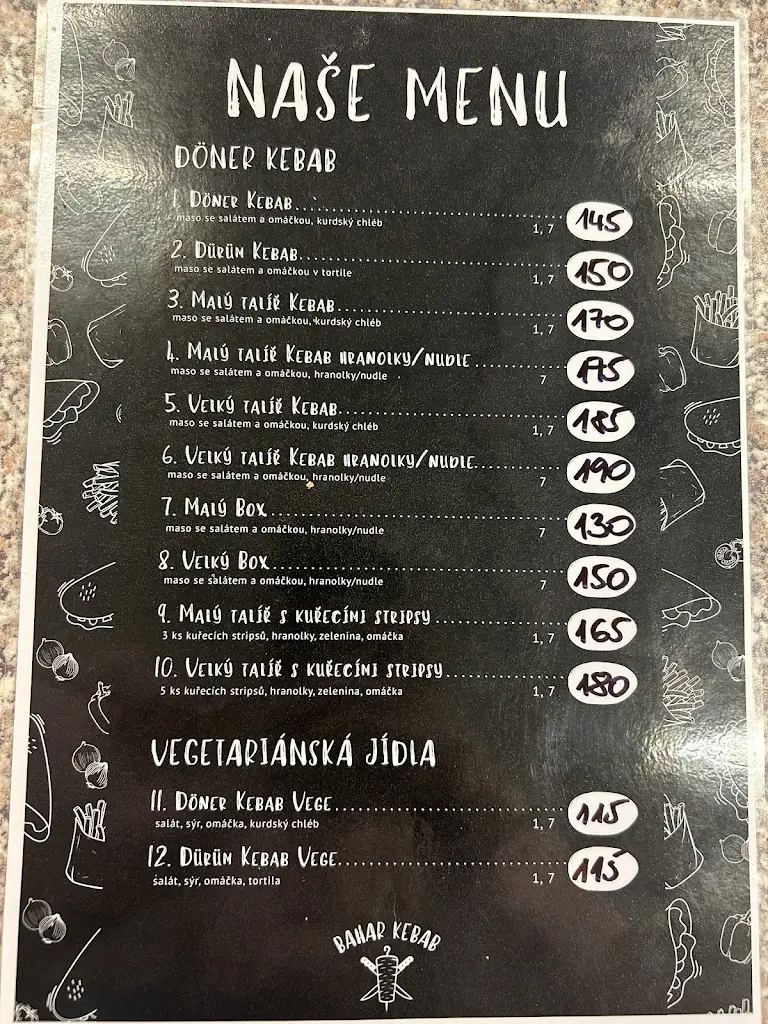 NAŠE MENU
DÖNER KEBAB
1. DÖNER KEBAB 145
maso se salátem a omáčkou, kurdský chléb 1, 7
2. DÜRÜN KEBAB 150
maso se salátem a omáčkou v tortile 1, 7
3. MALÝ TALÍŘ KEBAB 170
maso se salátem a omáčkou, kurdský chléb 1, 7
4. MALÝ TALÍŘ KEBAB HRANOLKY/NUDLE 175
maso se salátem a omáčkou, hranolky/nudle 7
5. VELKÝ TALÍŘ KEBAB 185
maso se salátem a omáčkou, kurdský chléb 1, 7
6. VELKÝ TALÍŘ KEBAB HRANOLKY/NUDLE 190
maso se salátem a omáčkou, hranolky/nudle 7
7. MALÝ BOX 130
maso se salátem a omáčkou, hranolky/nudle 7
8. VELKÝ BOX 150
maso se salátem a omáčkou, hranolky/nudle 7
9. MALÝ TALÍŘ S KUŘECÍMI STRIPSY 165
3 ks kuřecích stripsů, hranolky, zelenina, omáčka 1, 7
10. VELKÝ TALÍŘ S KUŘECÍMI STRIPSY 180
5 ks kuřecích stripsů, hranolky, zelenina, omáčka 1, 7
VEGETARIÁNSKÁ JÍDLA
11. DÖNER KEBAB VEGE 115
salát, sýr, omáčka, kurdský chléb 1, 7
12. DÜRÜN KEBAB VEGE 115
salát, sýr, omáčka, tortila 1, 7
BAHAR KEBAB